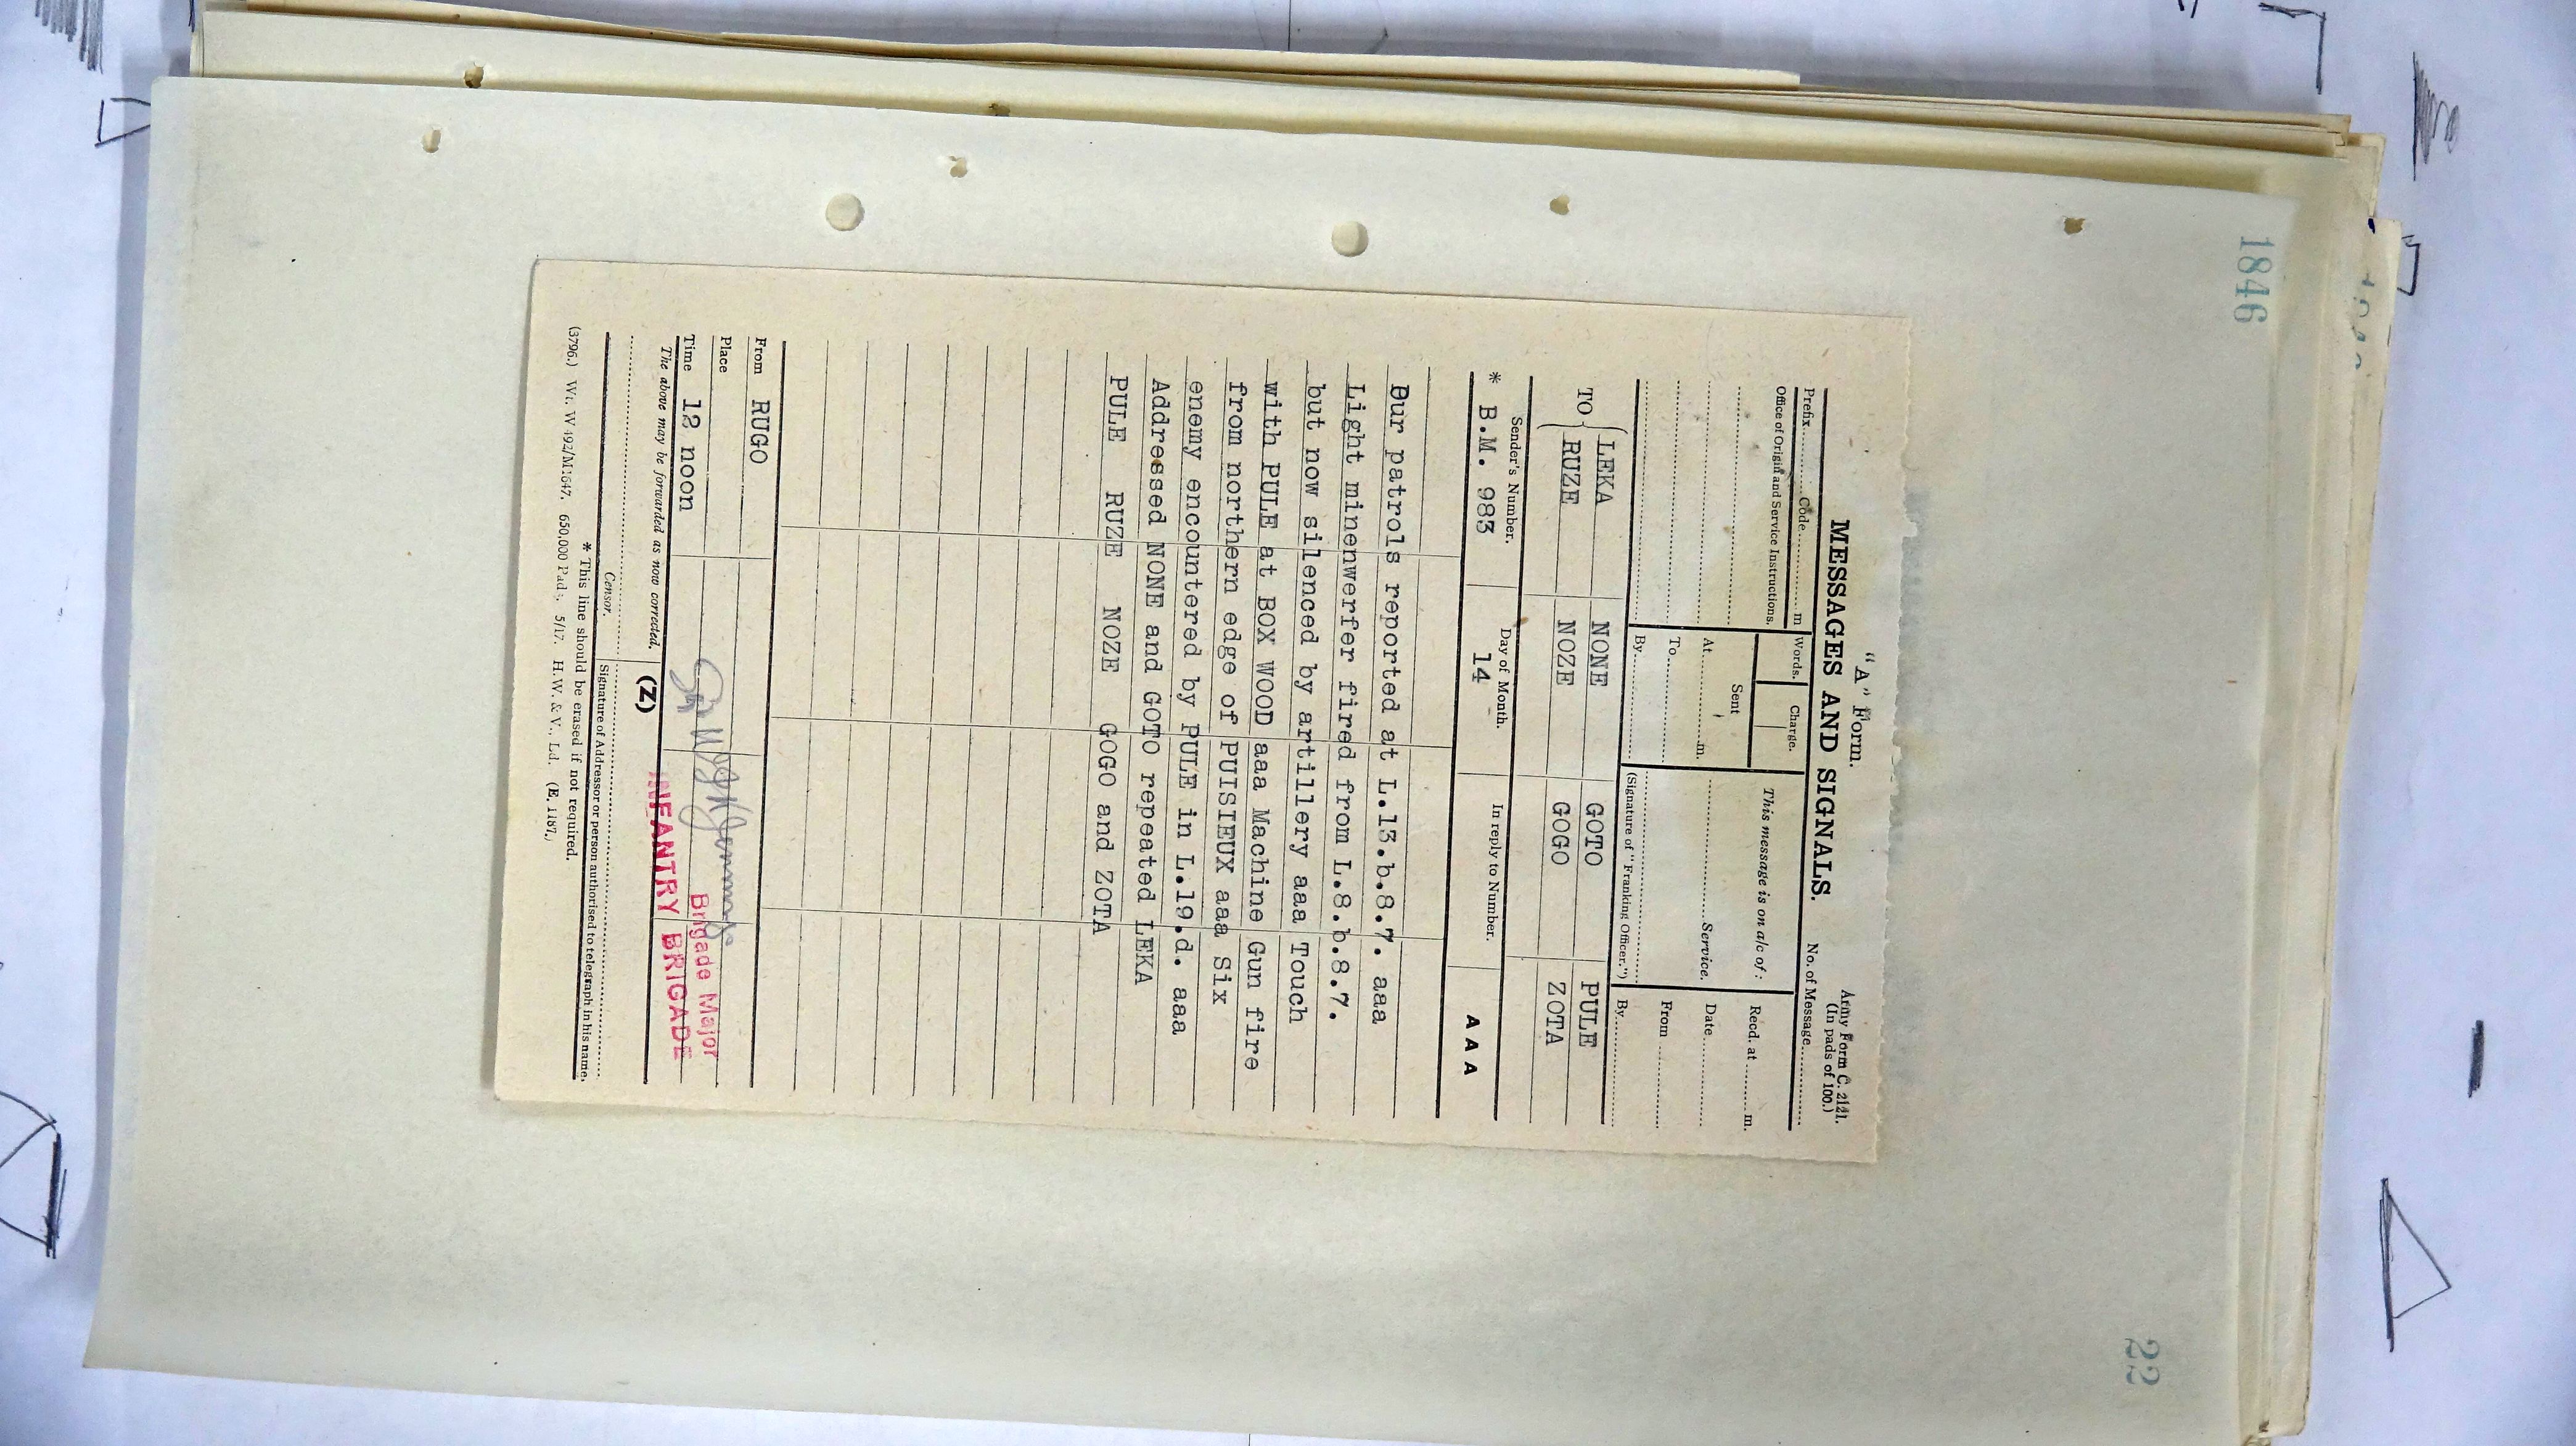 1846
"A" Form.
Army Form C. 2121.
(In pads of 100.)
MESSAGES AND SIGNALS.
No. of Message
Prefix Code m
Words. Charge.
This message is on a/c of:
Recd. at m.
Office of Origin and Service Instructions.
Sent
At m.
Service.
Date
To
From
By
(Signature of "Franking Officer.")
By
TO { LEKA NONE GOTO PULE
RUZE NOZE GOGO ZOTA
Sender's Number. Day of Month. In reply to Number.
* B.M. 983 14 A A A
Our patrols reported at L.13.b.8.7. aaa
Light minenwerfer fired from L.8.b.8.7.
but now silenced by artillery aaa Touch
with PULE at BOX WOOD aaa Machine Gun fire
from northern edge of PUISIEUX aaa Six
enemy encountered by PULE in L.19.d. aaa
Addressed NONE and GOTO repeated LEKA
PULE RUZE NOZE GOGO and ZOTA
From RUGO
Place
Time 12 noon
Brigade Major
INFANTRY BRIGADE
The above may be forwarded as now corrected. (Z)
Censor. Signature of Addressor or person authorised to telegraph in his name.
* This line should be erased if not required.
(3796.) Wt. W 492/M1647. 650,000 Pads. 5/17. H.W. & V., Ld. (E. 1187.)
22